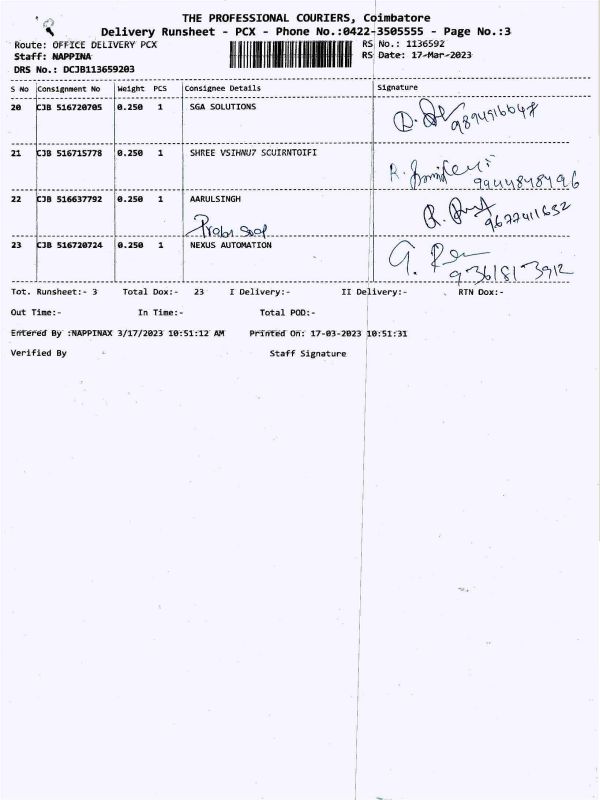 THE PROFESSIONAL COURIERS, Coimbatore
Delivery Runsheet - PCX - Phone No.:0422-3505555 - Page No.:3
Route: OFFICE DELIVERY PCX RS No.: 1136592
Staff: NAPPINA RS Date: 17-Mar-2023
DRS No.: DCJB113659203
S No Consignment No Weight PCS Consignee Details Signature
20 CJB 516720705 0.250 1 SGA SOLUTIONS
21 CJB 516715778 0.250 1 SHREE VSIHNU7 SCUIRNTOIFI
9944848496
22 CJB 516637792 0.250 1 AARULSINGH
9677411632
23 CJB 516720724 0.250 1 NEXUS AUTOMATION
Tot. Runsheet:- 3 Total Dox:- 23 I Delivery:- II Delivery:- RTN Dox:-
Out Time:- In Time:- Total POD:-
Entered By :NAPPINAX 3/17/2023 10:51:12 AM Printed On: 17-03-2023 10:51:31
Verified By Staff Signature